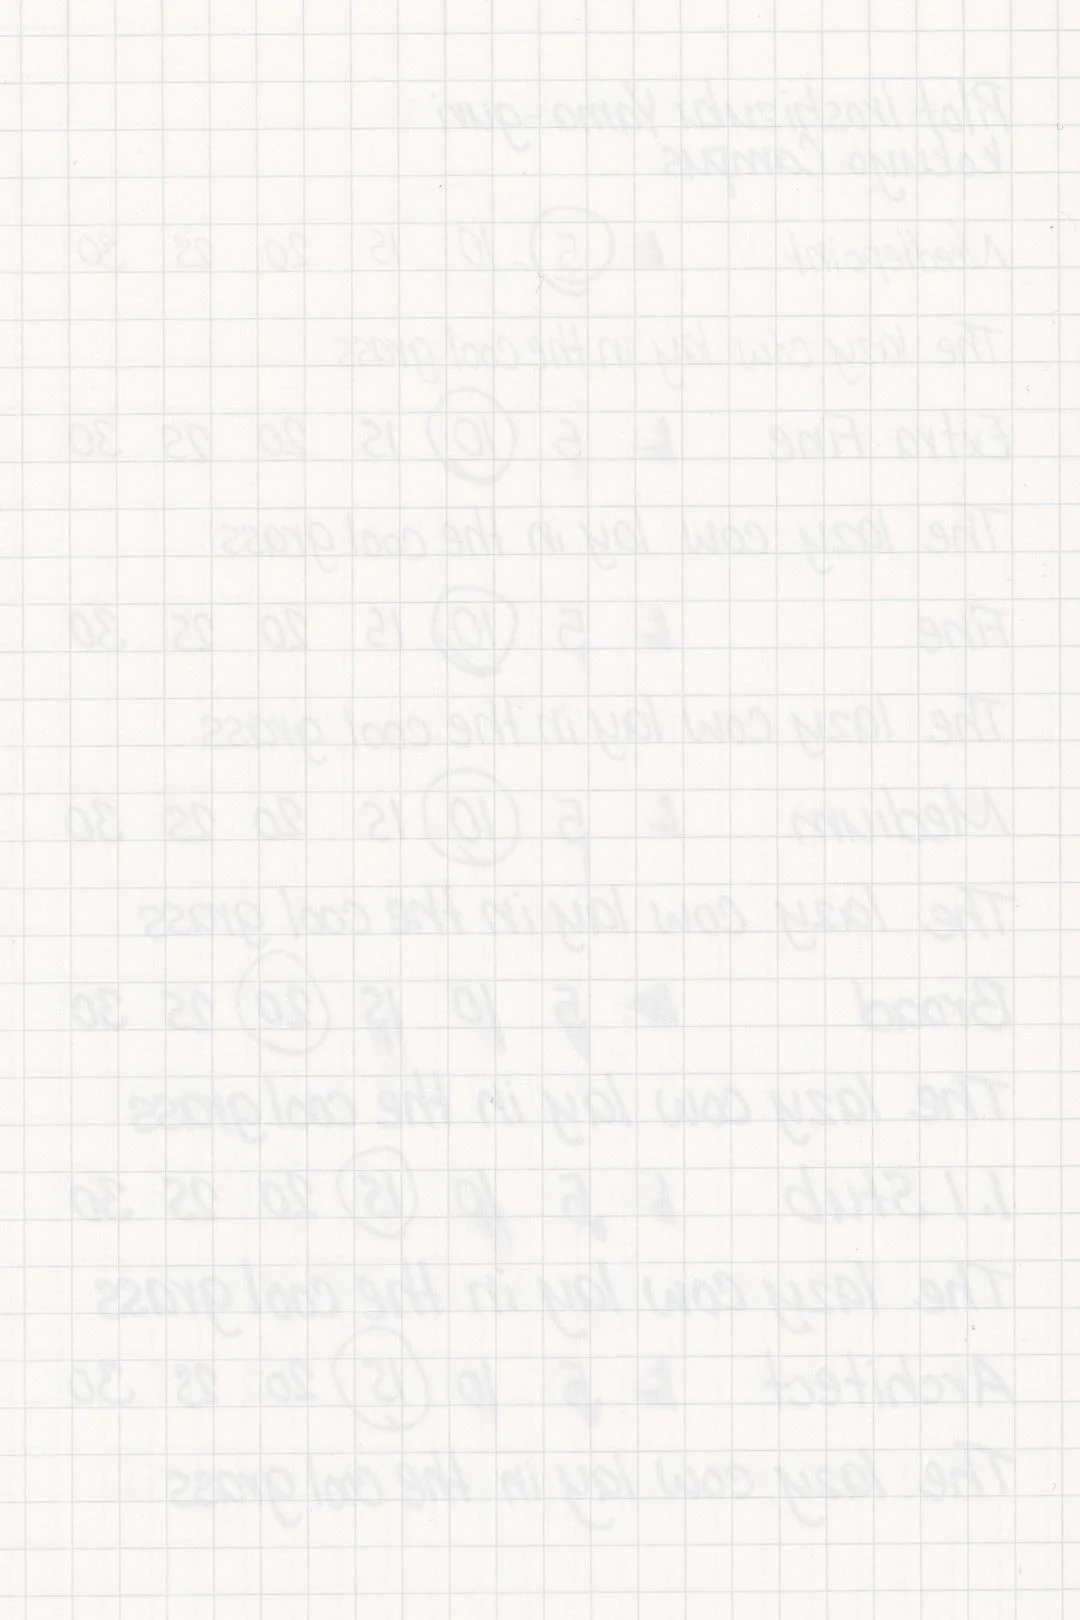 Pilot Iroshizuku Yama-guri
Kokuyo Campus
Needlepoint 5 10 15 20 25 30
The lazy cow lay in the cool grass
Extra Fine 5 10 15 20 25 30
The lazy cow lay in the cool grass
Fine 5 10 15 20 25 30
The lazy cow lay in the cool grass
Medium 5 10 15 20 25 30
The lazy cow lay in the cool grass
Broad 5 10 15 20 25 30
The lazy cow lay in the cool grass
1.1 Stub 5 10 15 20 25 30
The lazy cow lay in the cool grass
Architect 5 10 15 20 25 30
The lazy cow lay in the cool grass